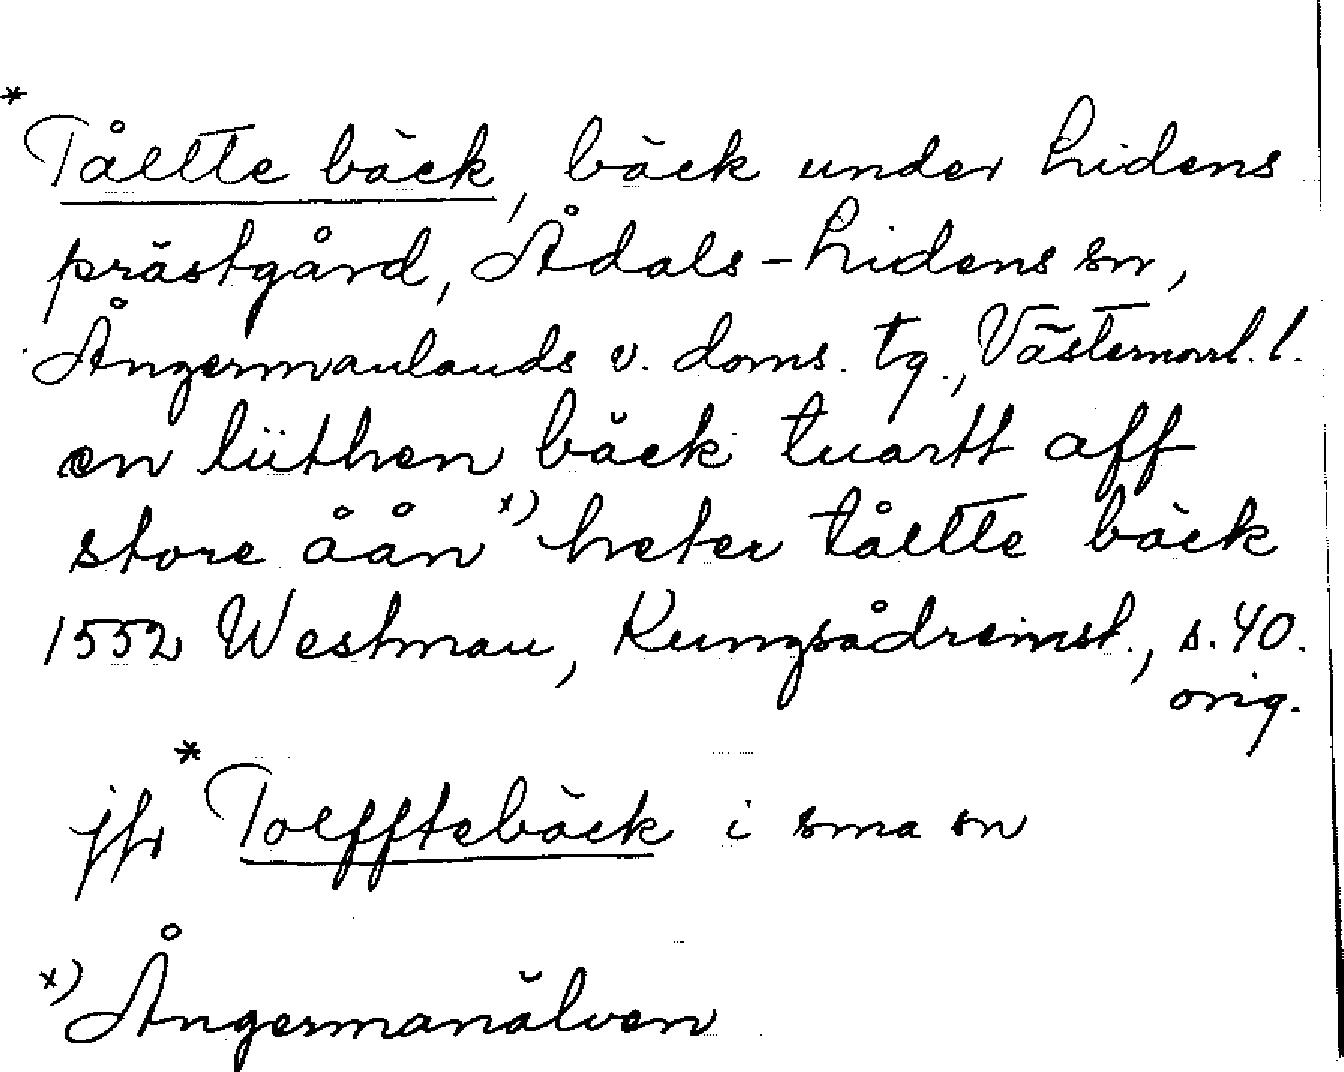 * Tåeltte bäck, bäck under Lidens
prästgård, Ådals-Lidens sn,
Ångermanlands v. doms. tg., Västernorrl. l.
en liithen bäck tuartt aff
store åån x) heter tåeltte bäck
1552 Westman, Kungsådreinst., s. 40.
orig.
jfr * Toefftebäck i sma sn
x) Ångermanälven